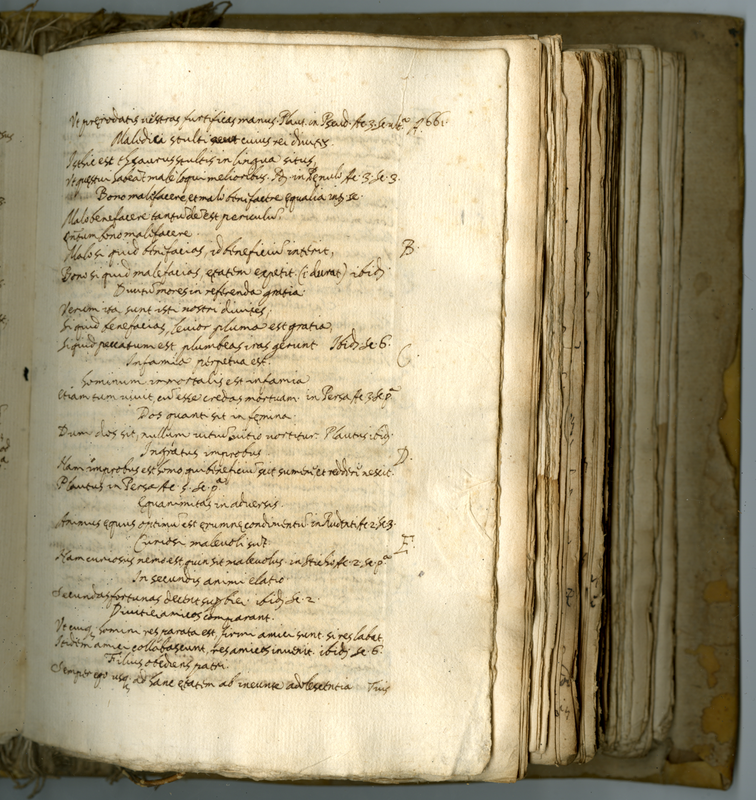 Ut præ rodatis vestras furtificas manus. Plaut. in Pseud. Ac. 3. Sc.
Maledici stulti cuius rei divites.
Isthic est thesaurus stultis in lingua situs,
Ut quæstui habeāt male loqui melioribus. Id. in Penulo Ac. 3. Sc. 3.
Bono malefacere, et malo benefacere equalia
Malo benefacere tantūdē est periculū
bono malefacere.
Malo si quid benefacias, id beneficiū intērit,
B
Bono si quid malefacias, etatem expetit (i durat) ibid.
Divitū mores in referenda gratia
Verum ita sunt isti nostri divites,
Si quid benefacias, levior pluma est gratia,
Si quid peccatum est plumbeas iras gerunt Ibid. Sc. 6.
C
Infamia perpetua est.
hominum immortalis est infamia
Etiam tum vivit, cū esse credas mortuam. in Persa Ac. 3. Sc. pᵃ
Dos quanti sit in femina.
Dum dos sit, nullum vitiū vitio vortitur. Plautus ibid.
Ingratus improbus.
D.
Nam improbus est homo qui beneficiū scit sumere et reddere nescit.
Plautus in Persa Ac. 5. Sc. pᵃ
Equanimitas in adversis.
Animus equus optimū est erumne condimentū. in Rudenti Ac. 2. Sc. 3.
Curiosi malevoli sūt.
E.
Nam curiosus nemo est, quin sit malevolus. in Sticho Ac. 2. Sc. pᵃ
In secundis animi elatio
Secundas fortunas decent superbie. ibid. Sc. 2.
Divitie amicos comparant.
Ut cuiq; homini res parata est, firmi amici sunt. si res labat
Itidem amici collabascunt, res amicos invenit. ibid. Sc. 6.
Filius obediens patri.
Semper ego usq; ad hanc etatem ab ineunte adolescentia
Tuis